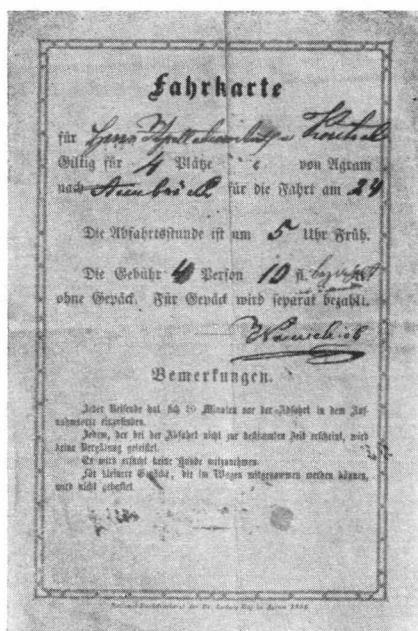 Fahrkarte
für Herrn
Giltig für 4 Plätze von Agram
nach für die Fahrt am 24
Die Abfahrtsstunde ist um 5 Uhr Früh.
Die Gebühr 4 Person 10 fl.
ohne Gepäck. Für Gepäck wird separat bezahlt.
Bemerkungen.
Jeder Reisende hat sich 10 Minuten vor der Abfahrt in dem Auf-
nahmsorte einzufinden.
Jedem, der bei der Abfahrt nicht zur bestimmten Zeit erscheint, wird
keine Vergütung geleistet.
Es wird ersucht keine Hunde mitzunehmen.
Für kleinere Gepäcke, die im Wagen mitgenommen werden können,
wird nicht gehaftet.